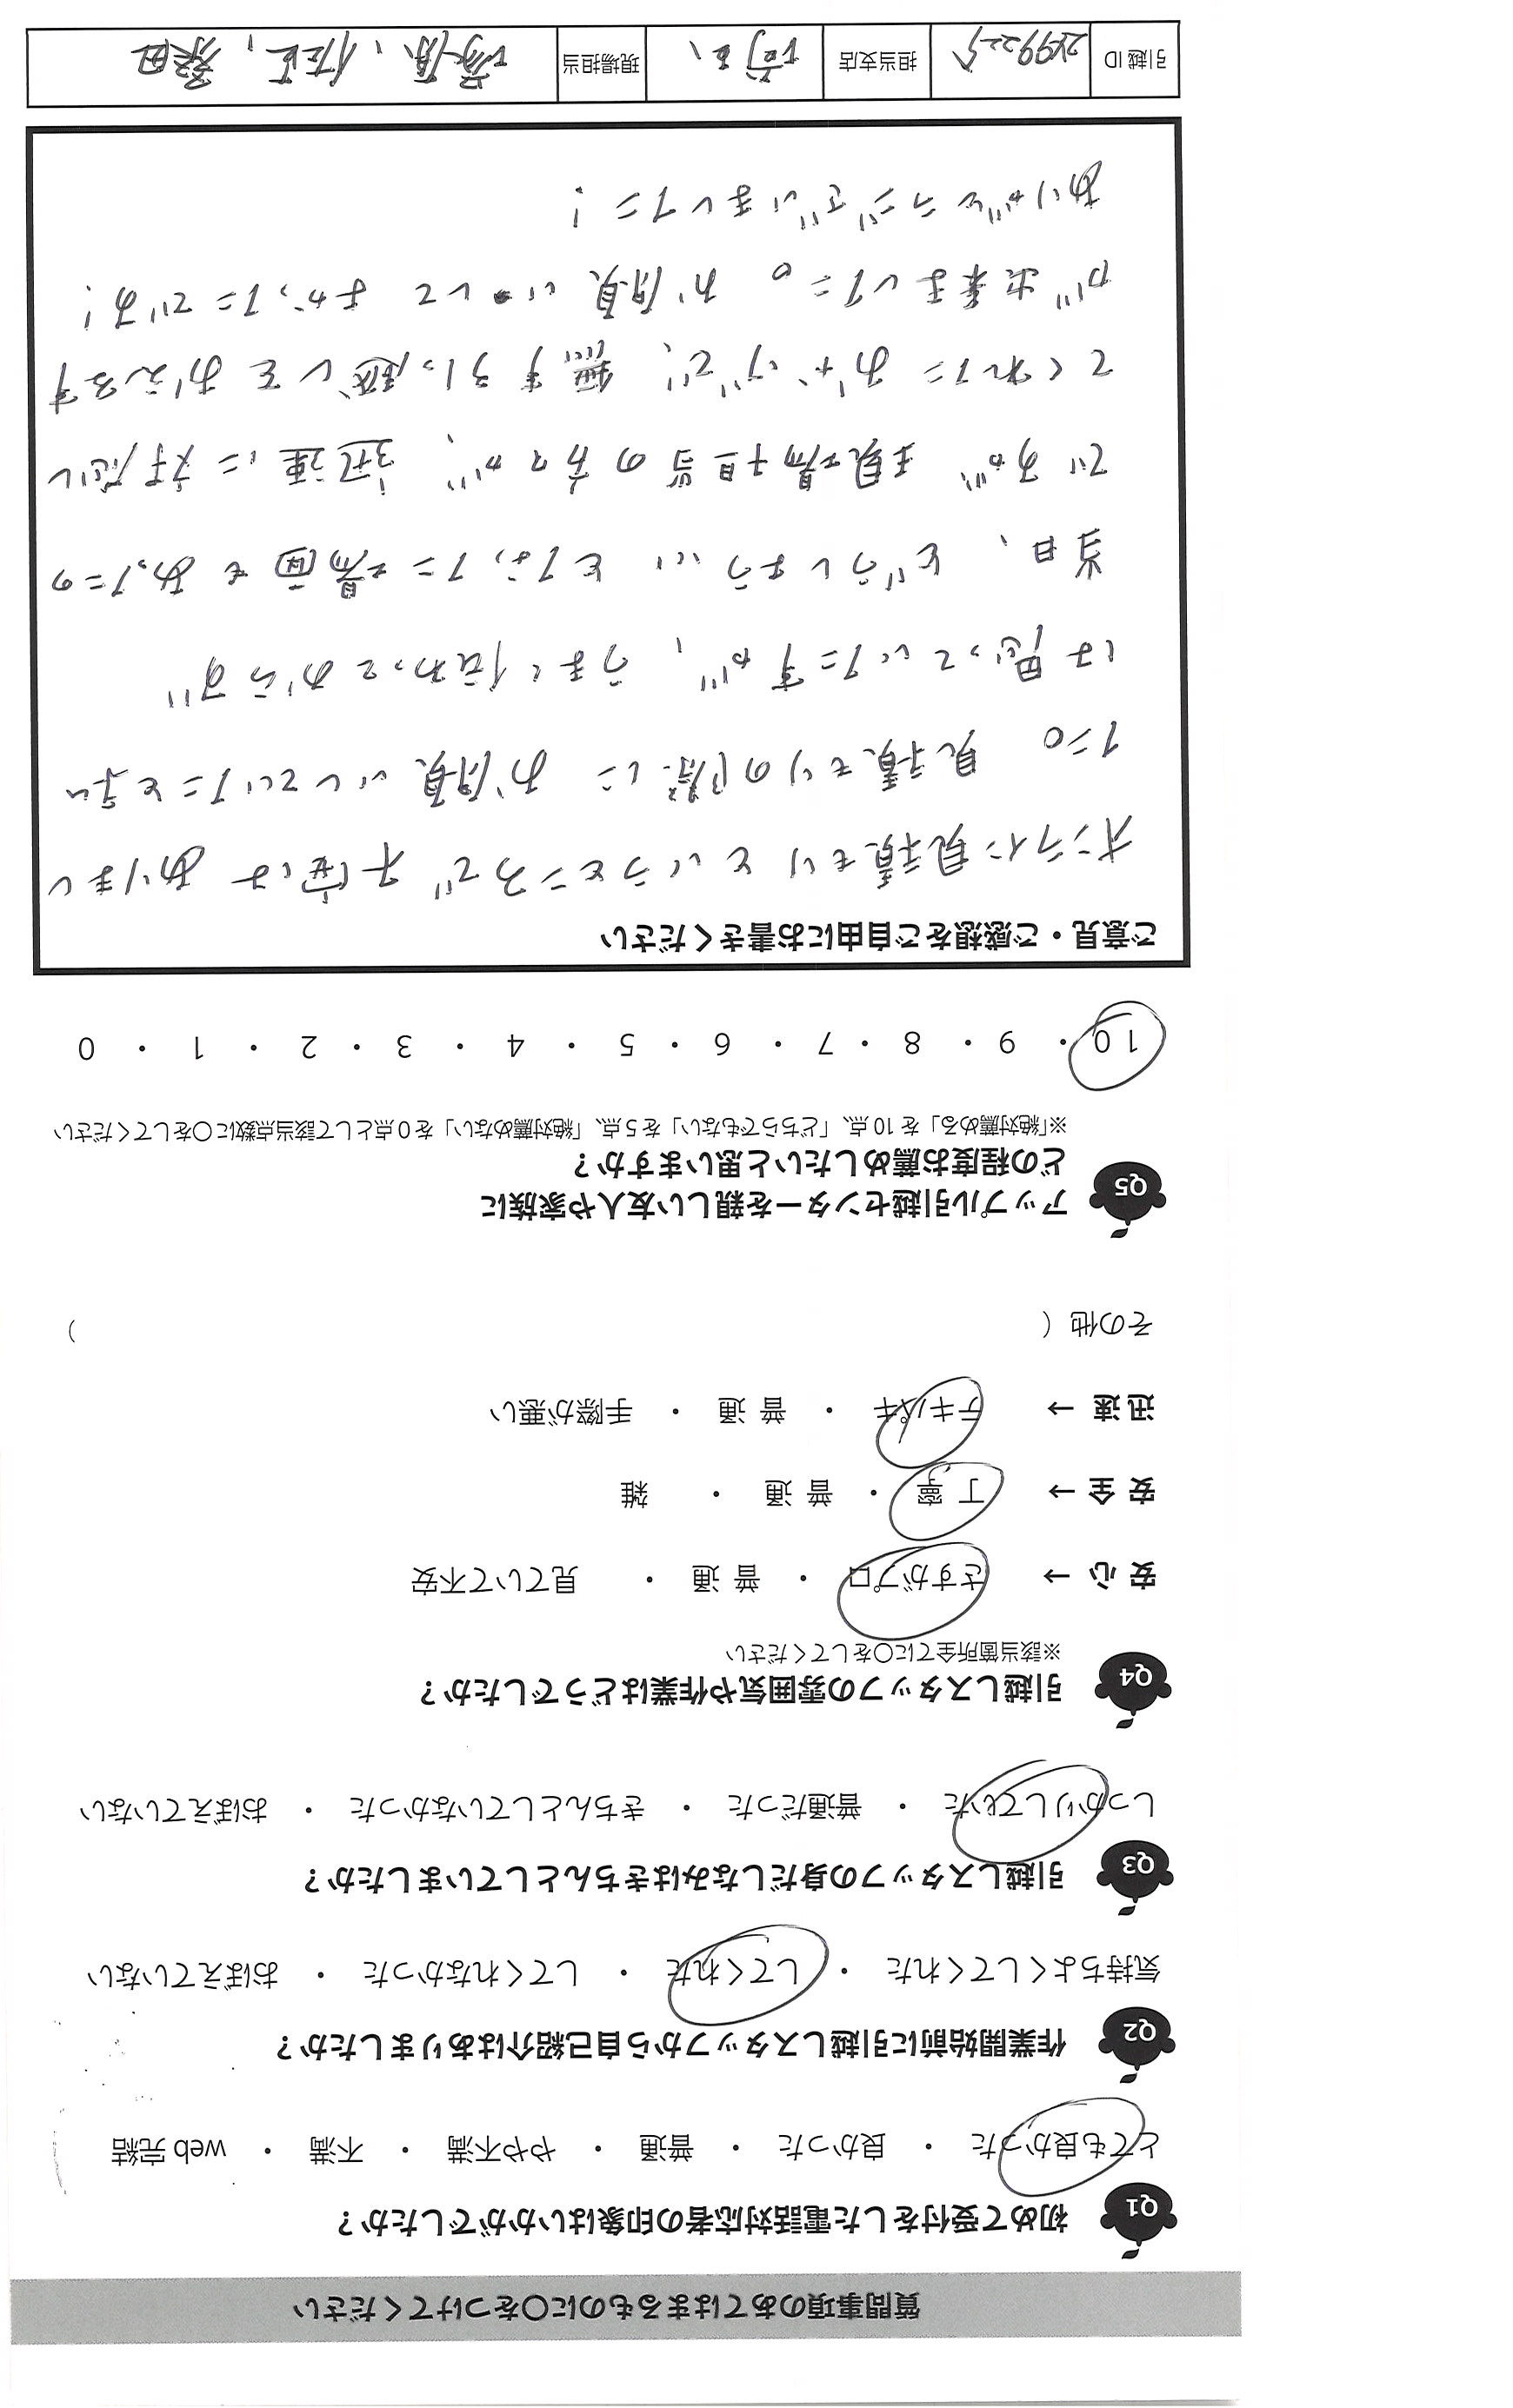 質問事項のあてはまるものに○をつけてください
Q1 初めて受付をした電話対応者の印象はいかがでしたか?
とても良かった ・ 良かった ・ 普通 ・ やや不満 ・ 不満 ・ web 完結
Q2 作業開始前に引越しスタッフから自己紹介はありましたか?
気持ちよくしてくれた ・ してくれた ・ してくれなかった ・ おぼえていない
Q3 引越しスタッフの身だしなみはきちんとしていましたか?
しっかりしていた ・ 普通だった ・ きちんとしていなかった ・ おぼえていない
Q4 引越しスタッフの雰囲気や作業はどうでしたか?
※該当箇所全てに○をして​ください
安 心 → さすがプロ ・ 普 通 ・ 見ていて不安
安 全 → 丁 寧 ・ 普 通 ・ 雑
迅 速 → テキパキ ・ 普 通 ・ 手際が悪い
その他 ( )
Q5 アップル引越センターを親しい友人や家族に
どの程度お薦めしたいと思いますか?
※「絶対薦める」を 10 点、「どちらでもない」を 5 点、「絶対薦めない」を 0 点として該当点数に○をしてください
10 ・ 9 ・ 8 ・ 7 ・ 6 ・ 5 ・ 4 ・ 3 ・ 2 ・ 1 ・ 0
ご意見・ご感想をご自由にお書きください
オンライン見積もりというところで不安は ありまし
た。見積もりの際に お願いしていたことも
は思っていたすが、うまく伝わっておらず
当日、どうしよう… となった場面もあったの
ですが 現場担当の方々が、迅速に対応し
てくれたおかげで、無事引っ越しをおえるす
が出来ました。お願いして よかったです!
ありがとうございました!
引越 ID 担当支店 現場担当